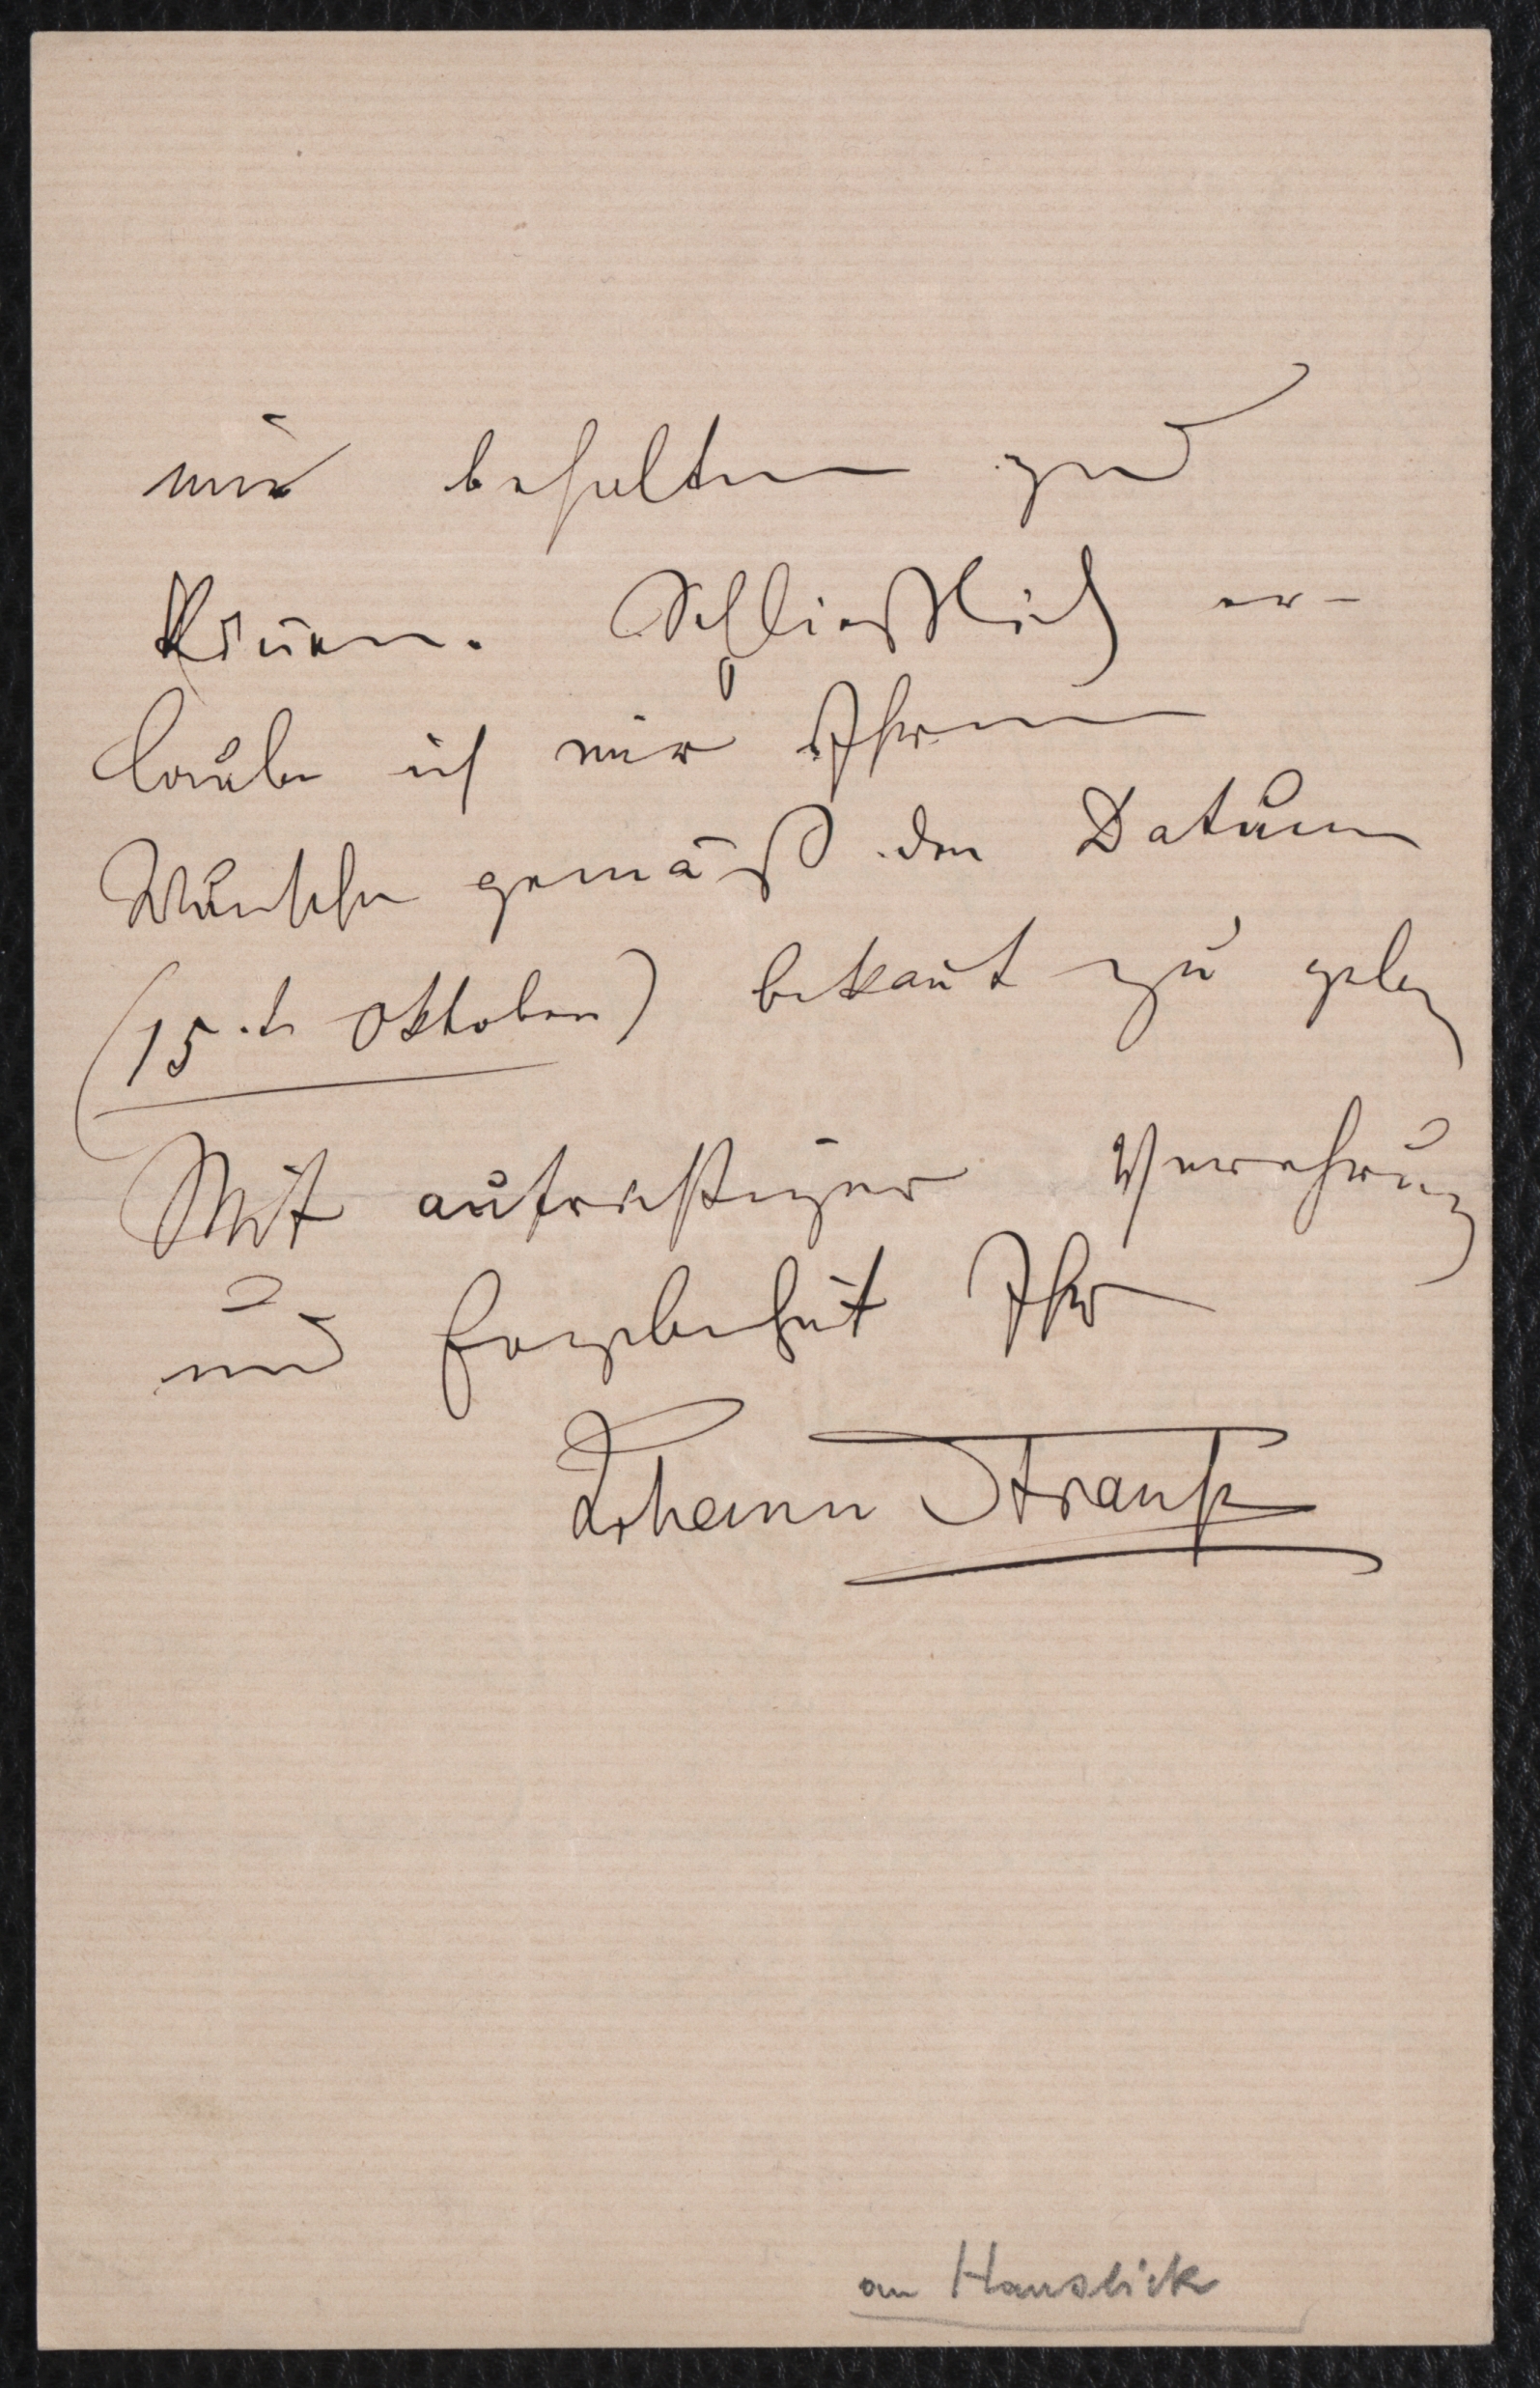 mir behalten zu
können. Schließlich er-
laube ich mir Ihrem
Wunsche gemäß den Datum
(15.te Oktober) bekannt zu geben
Mit aufrichtiger Verehrung
und Ergebenheit Ihr
Johann Strauß
an Hanslick